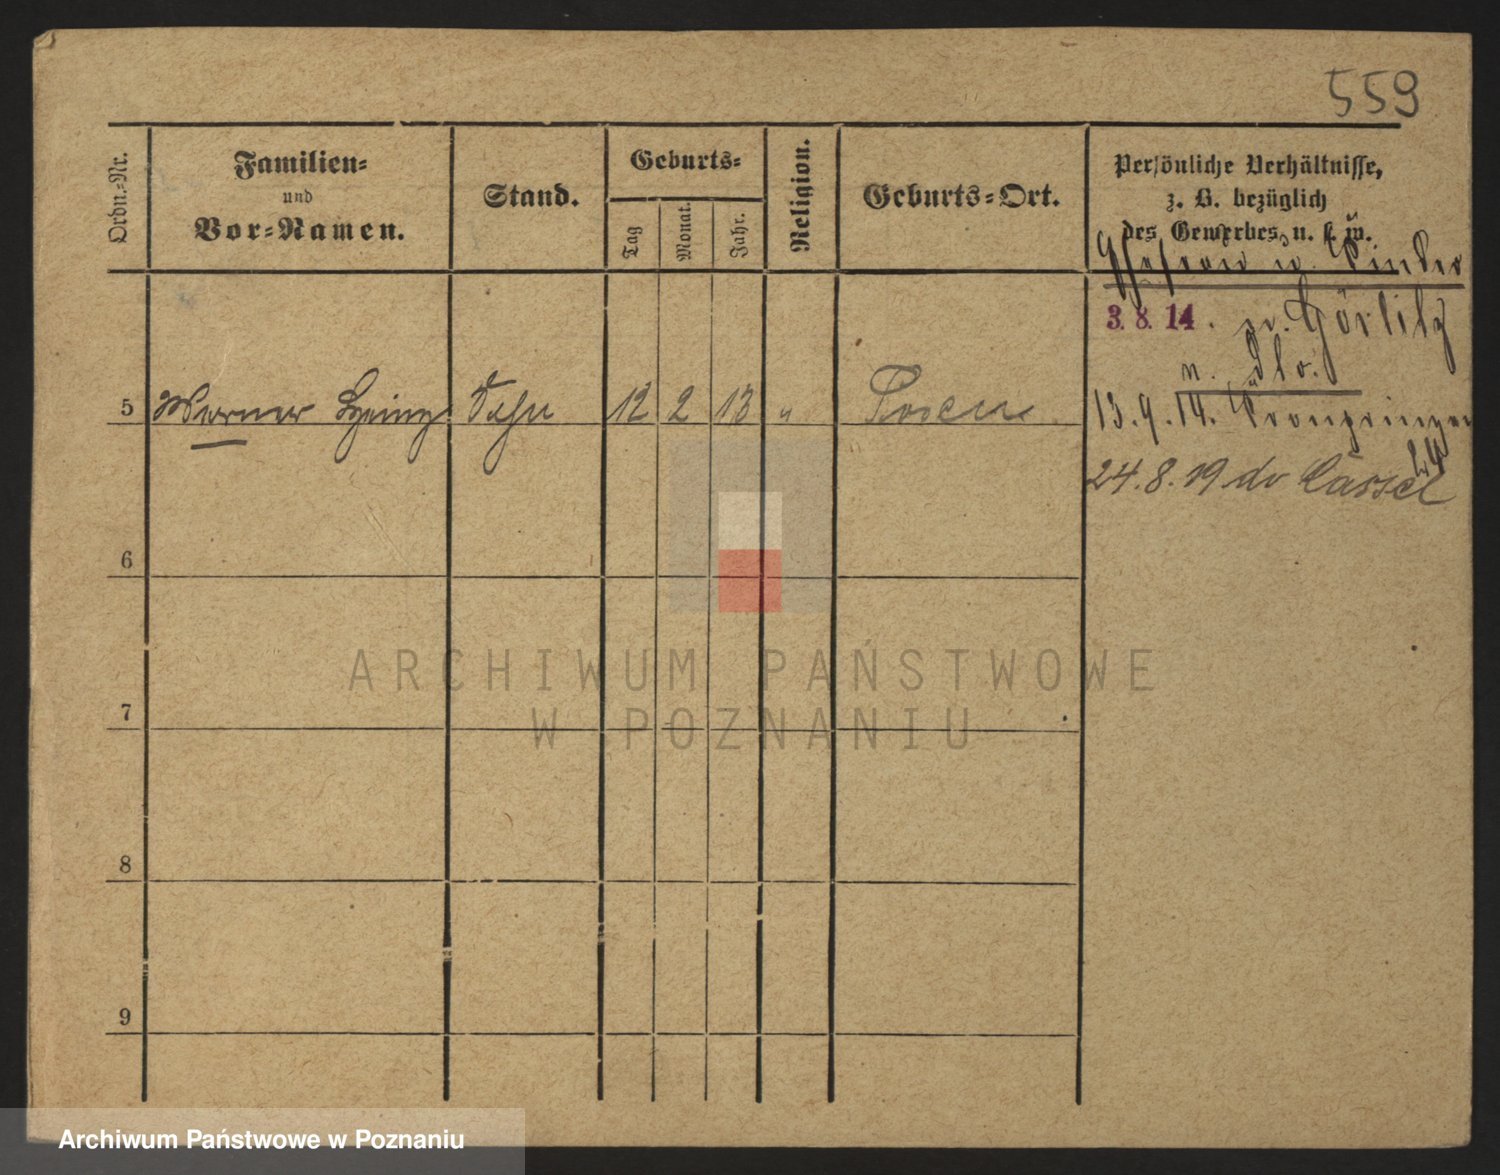 559
Ordn.-Nr.
Familien-
und
Vor-Namen.
Stand.
Geburts-
Tag
Monat.
Jahr.
Religion.
Geburts-Ort.
Persönliche Verhältnisse,
z. B. bezüglich
des Gewerbes, u. s. w.
Ehefrau u. Kinder
3. 8. 14. v. Görlitz
5 Werner Heinz Sohn 12 2 13 " Posen
13. 9. 14. Kronprinzen
24. 8. 19 Cassel
6
7
8
9
ARCHIWUM PAŃSTWOWE
W POZNANIU
Archiwum Państwowe w Poznaniu